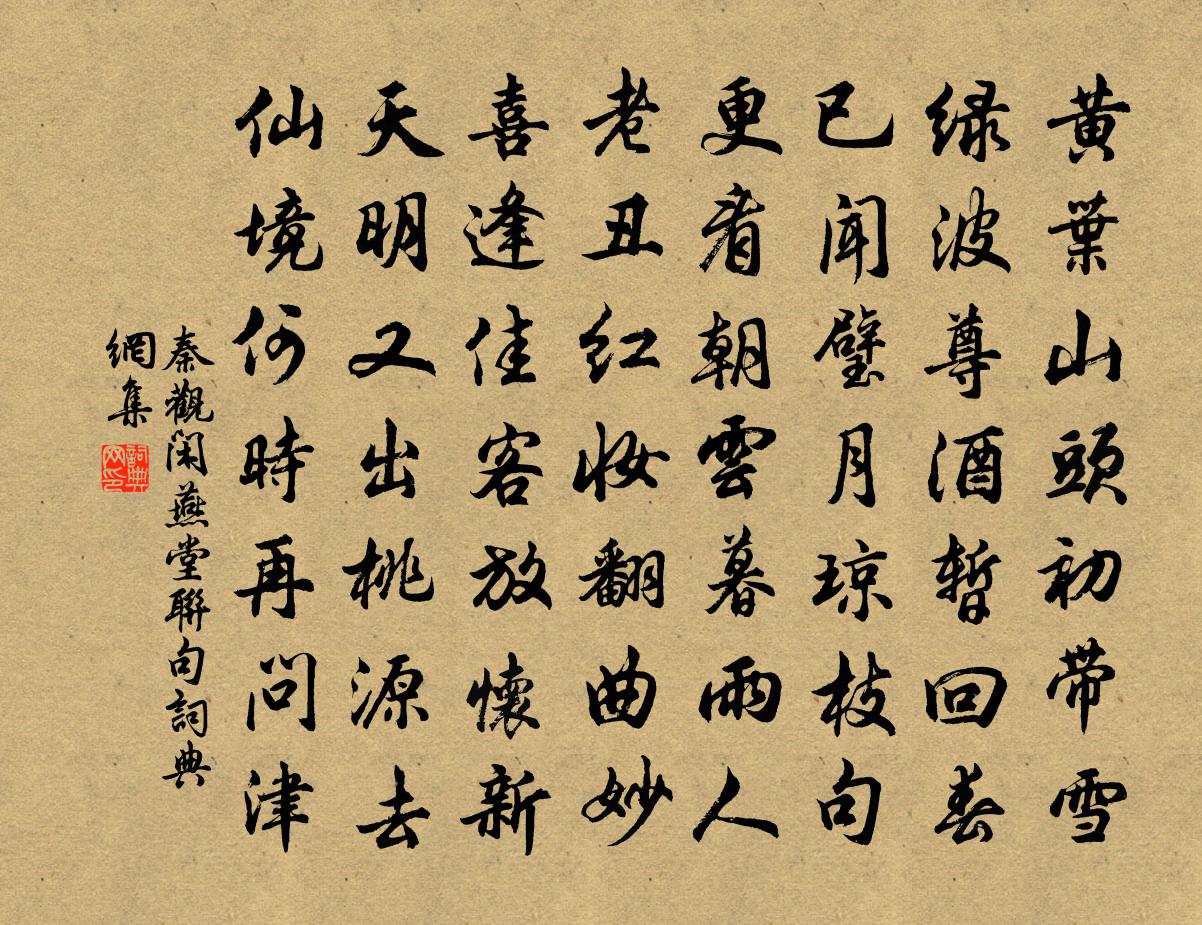 黄葉山頭初带雪
绿波尊酒暫回春
已闻璧月琼枝句
更看朝雲暮雨人
老丑红妆翻曲妙
喜逢佳客放懷新
天明又出桃源去
仙境何時再問津
秦觀闲燕堂聯句詞典
網集
詞典
网印